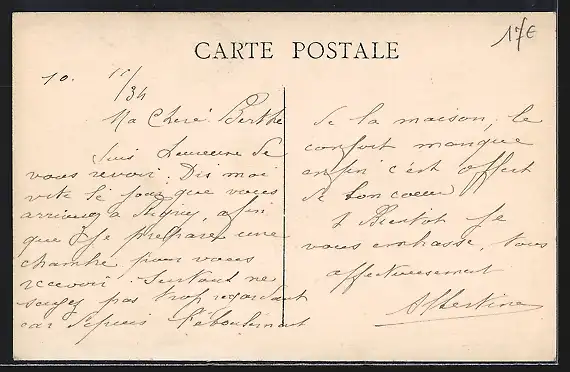 CARTE POSTALE
17€
10. 11/34
Ma Chère Berthe
Suis heureuse de
vous revoir. Dis moi
vite le jour que vous
arriverez a afin
que je prépare une
chambre pour vous
recevoir. Surtout ne
soyez pas trop regardant
car depuis l'éboulement
de la maison, le
confort manque
enfin c'est offert
de bon coeur
a Bientot je
vous embrasse, tous
affectueusement
Albertine